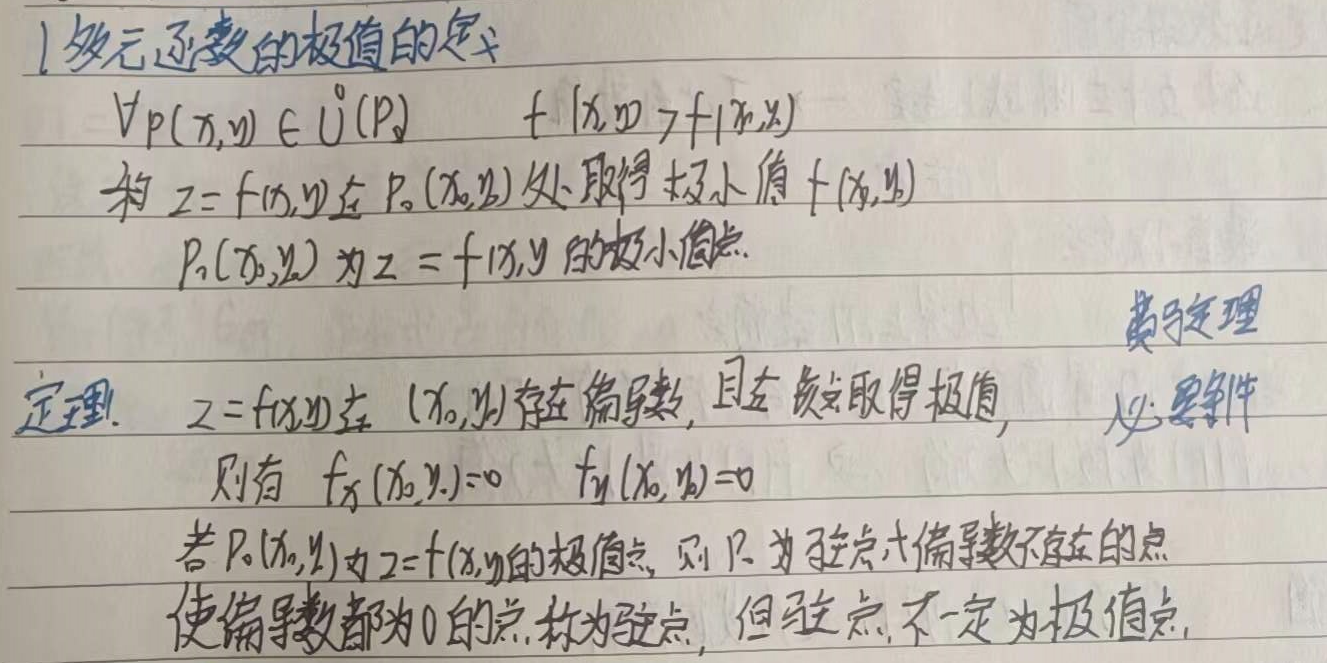 1 多元函数的极值的定义
∀P(x,y)∈Ů(P₀) f(x,y)>f(x₀,y₀)
称 z=f(x,y)在 P₀(x₀,y₀)处取得极小值 f(x₀,y₀)
P₀(x₀,y₀) 为 z=f(x,y 的极小值点.
费马定理
定理. z=f(x,y)在 (x₀,y₀)存在偏导数, 且在该点取得极值, 必要条件
则有 fx(x₀,y₀)=0 fy(x₀,y₀)=0
若 P₀(x₀,y₀)为 z=f(x,y)的极值点, 则 P₀ 为驻点+偏导数不存在的点
使偏导数都为0的点,称为驻点, 但驻点,不一定为极值点,